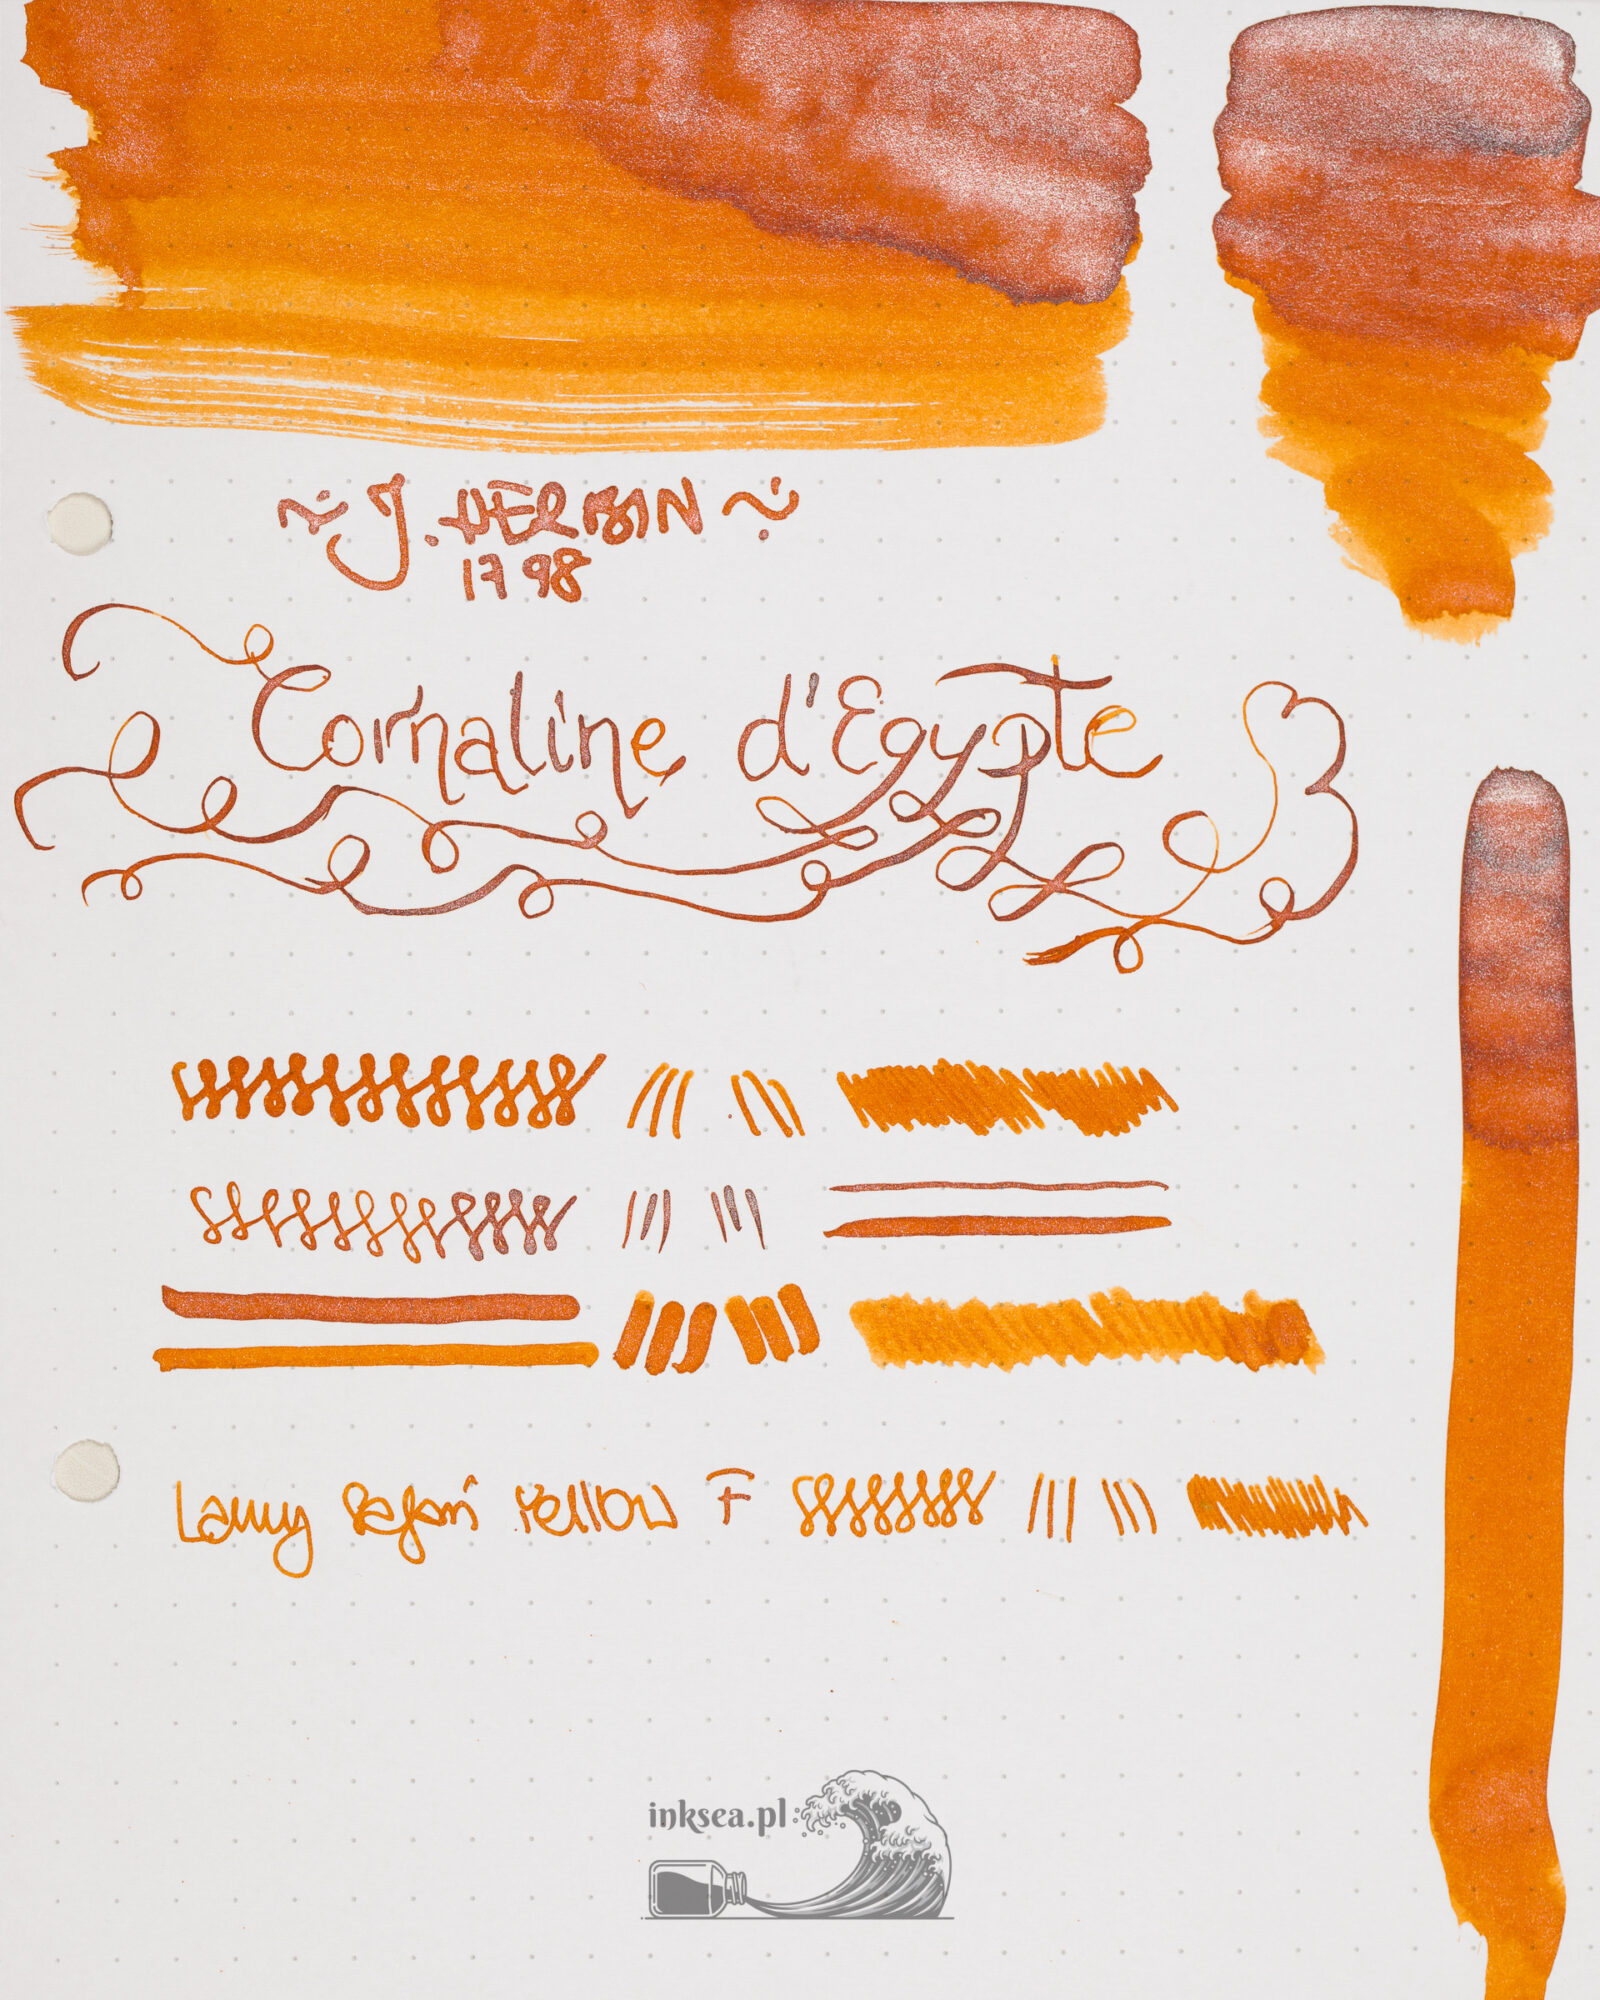 ~ J. HERBIN ~
1798
Cornaline d'Egypte
Lamy Safari Yellow F
inksea.pl